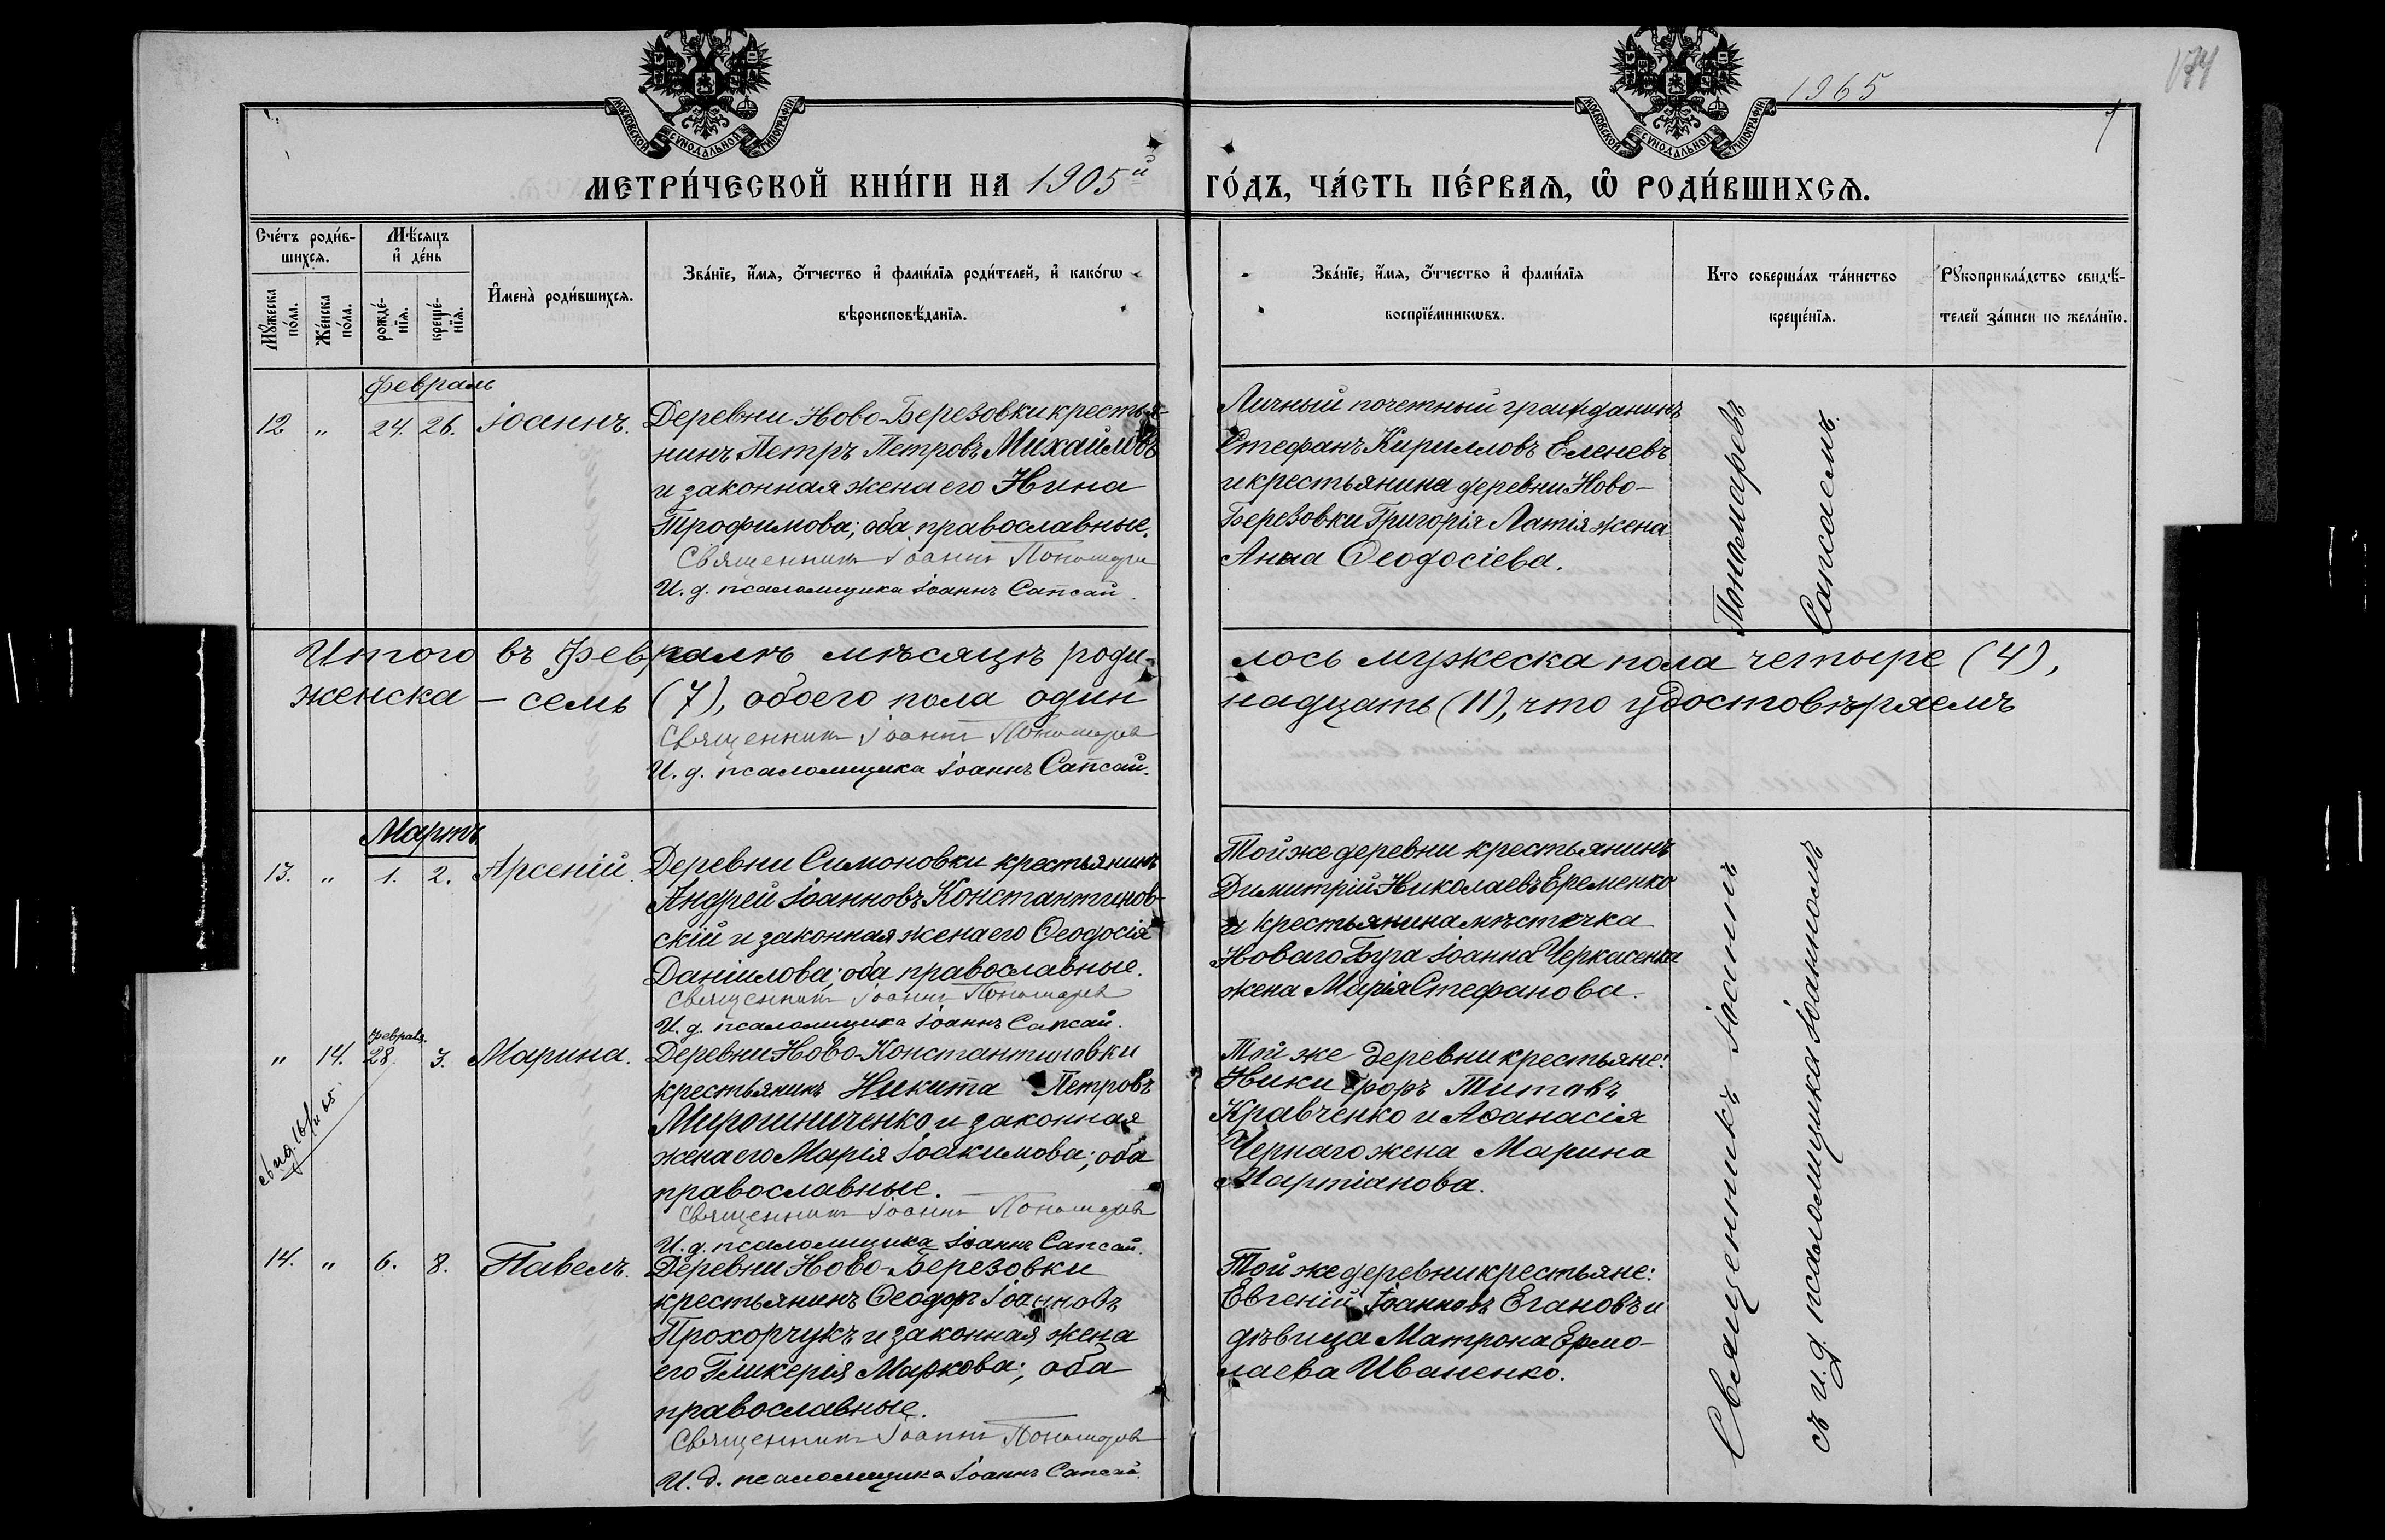 1965
174
МОСКОВСКОЙ СѴНОДАЛЬНОЙ ТИПОГРАФІИ
МОСКОВСКОЙ СѴНОДАЛЬНОЙ ТИПОГРАФІИ
МЕТРИ́ЧЕСКОЙ КНИ́ГИ НА 1905й ГО́ДЪ, ЧА́СТЬ ПЕ́РВАѦ, Ѡ҆ РОДИ́ВШИХСѦ.
Сче́тъ роди́в-
шихсѧ.
Мꙋжеска по́ла.
Же́нска по́ла.
Мѣ́сяцъ
и҆ де́нь
рожде́-
нїѧ.
креще́-
нїѧ.
И҆мена̀ роди́вшихсѧ.
Зва́нїе, и҆́мѧ, ѻ҆́тчество и҆ фами́лїѧ роди́телей, и҆ како́гѡ
вѣроисповѣ́данїѧ.
Зва́нїе, и҆́мѧ, ѻ҆́тчество и҆ фами́лїѧ
воспрїе́мникѡвъ.
Кто соверша́лъ та́инство
креще́нїѧ.
Рꙋкоприкла́дство свидѣ́-
телей за́писи по жела́нїю.
Февраль
12 " 24. 26. Іоаннъ.
Деревни Ново-Березовки крестья-
нинъ Петръ Петровъ Михайловъ
и законная жена его Нина
Трофимова; оба православные.
Священникъ Іоаннъ Пономаревъ
И. д. псаломщика Іоаннъ Сапсай.
Личный почетный гражданинъ
Стефанъ Кирилловъ Еленевъ
и крестьянина деревни Ново-
Березовки Григорія Латія жена
Анна Ѳеодосіева.
Итого въ Февралѣ мѣсяцѣ роди-лось мужеска пола четыре (4),
женска — семь (7), обоего пола один надцать (11), что удостовѣряемъ
Священникъ Іоаннъ Пономаревъ
И. д. псаломщика Іоаннъ Сапсай.
Мартъ
13. " 1. 2. Арсеній.
Деревни Симоновки крестьянинъ
Андрей Іоанновъ Константинов-
скій и законная жена его Ѳеодосія
Даніилова; оба православные.
Священникъ Іоаннъ Пономаревъ
И. д. псаломщика Іоаннъ Сапсай.
Той же деревни крестьянинъ
Димитрій Николаевъ Еременко
и крестьянина мѣстечка
Новаго Буга Іоанна Черкасенка
жена Марія Стефанова.
" 14. Февраля. 28. 3. Марина.
Деревни Ново-Константиновки
крестьянинъ Никита Петровъ
Мирошниченко и законная
жена его Марія Іоакимова; оба
православные.
Священникъ Іоаннъ Пономаревъ
И. д. псаломщика Іоаннъ Сапсай.
Той же деревни крестьяне:
Никифоръ Титовъ
Кравченко и Аѳанасія
Чернаго жена Марина
Мартіанова.
14. " 6. 8. Павелъ.
Деревни Ново-Березовки
крестьянинъ Ѳеодоръ Іоанновъ
Прохорчукъ и законная жена
его Гликерія Маркова; оба
православные.
Священникъ Іоаннъ Пономаревъ
И. д. псаломщика Іоаннъ Сапсай.
Той же деревни крестьяне:
Евгеній Іоанновъ Егановъ и
дѣвица Матрона Ермо-
лаева Иваненко.
Священникъ Іоаннъ Пономаревъ
съ и. д. псаломщика Іоанномъ Сапсаемъ.